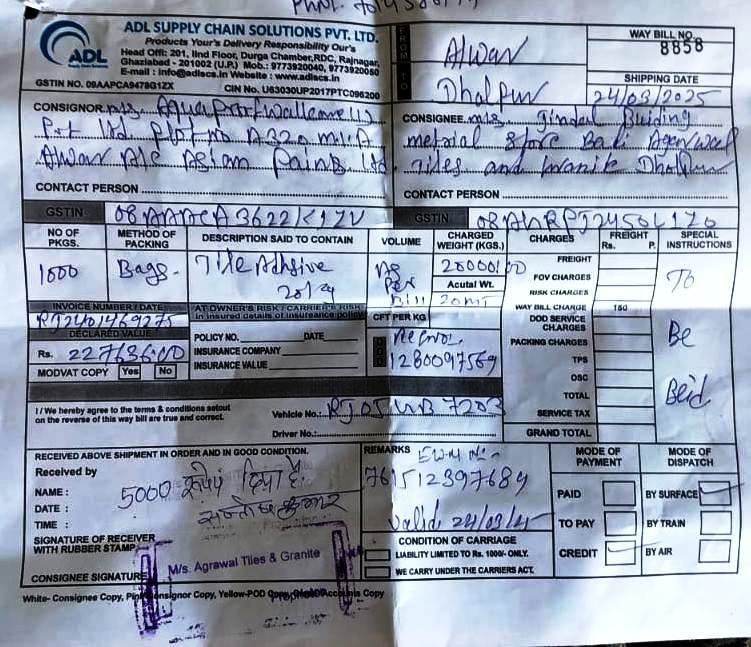 ADL SUPPLY CHAIN SOLUTIONS PVT. LTD.
Products Your's Delivery Responsibility Our's
Head Off: 201, IInd Floor, Durga Chamber,RDC, Rajnagar,
Ghaziabad - 201002 (U.P) Mob.: 9773920040, 9773920050
E-mail : info@adlscs.in Website : www.adlscs.in
ADL
GSTIN NO. 09AAPCA9478G1ZX CIN No. U63030UP2017PTC096200
FROM
TO
Alwar
Dholpur
WAY BILL NO.
8858
SHIPPING DATE
24/03/2025
CONSIGNOR M/s
Pvt ltd. Plot no A320 m.I.A
Alwar A/c Asian Paints ltd.
CONTACT PERSON
GSTIN
CONSIGNEE M/s. Jindal Buiding
metrial Store Badi
Tiles and Dholpur
CONTACT PERSON
GSTIN
NO OF PKGS.
METHOD OF PACKING
DESCRIPTION SAID TO CONTAIN
VOLUME
CHARGED WEIGHT (KGS.)
CHARGES
FREIGHT
Rs. P.
SPECIAL INSTRUCTIONS
1000
Bags
Tile Adhsive
20kg
As
Per
Bill
20000.00
Acutal Wt.
20 mt
FREIGHT
FOV CHARGES
RISK CHARGES
WAY BILL CHARGE 150
DOD SERVICE CHARGES
PACKING CHARGES
TPS
OSC
TOTAL
SERVICE TAX
GRAND TOTAL
To
Be
INVOICE NUMBER / DATE
RJ2401469275
DECLARED VALUE
Rs. 227636.00
MODVAT COPY Yes No
AT OWNER'S RISK / CARRIER'S RISK
In insured details of insurance policy
POLICY NO. DATE
INSURANCE COMPANY
INSURANCE VALUE
CFT PER KG
1280097569
I / We hereby agree to the terms & conditions setout
on the reverse of this way bill are true and correct.
Vehicle No.: RJ05UB7203
Driver No.:
RECEIVED ABOVE SHIPMENT IN ORDER AND IN GOOD CONDITION.
Received by
NAME :
DATE :
TIME :
5000 रूपये दिया है.
सन्तोष कुमार
SIGNATURE OF RECEIVER
WITH RUBBER STAMP
M/s. Agrawal Tiles & Granite
CONSIGNEE SIGNATURE
REMARKS
761512397689
Valid 24/03/25
CONDITION OF CARRIAGE
LIABILITY LIMITED TO Rs. 1000/- ONLY.
WE CARRY UNDER THE CARRIERS ACT.
MODE OF PAYMENT
PAID
TO PAY
CREDIT
MODE OF DISPATCH
BY SURFACE
BY TRAIN
BY AIR
White- Consignee Copy, Pink-Consignor Copy, Yellow-POD Copy, Accounts Copy